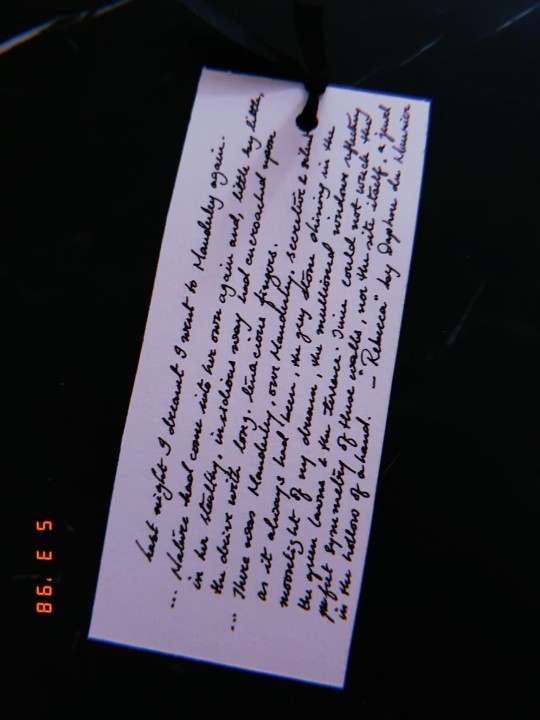 Last night I dreamt I went to Manderley again.
... Nature had come into her own again and, little by little,
in her stealthy, insidious way had encroached upon
the drive with long, tenacious fingers.
... There was Manderley, our Manderley, secretive & silent
as it always had been, the grey stone shining in the
moonlight of my dream, the mullioned windows reflecting
the green lawns & the terrace. Time could not wreck the
perfect symmetry of those walls, nor the site itself, a jewel
in the hollow of a hand. — "Rebecca" by Daphne du Maurier
5 3 '98